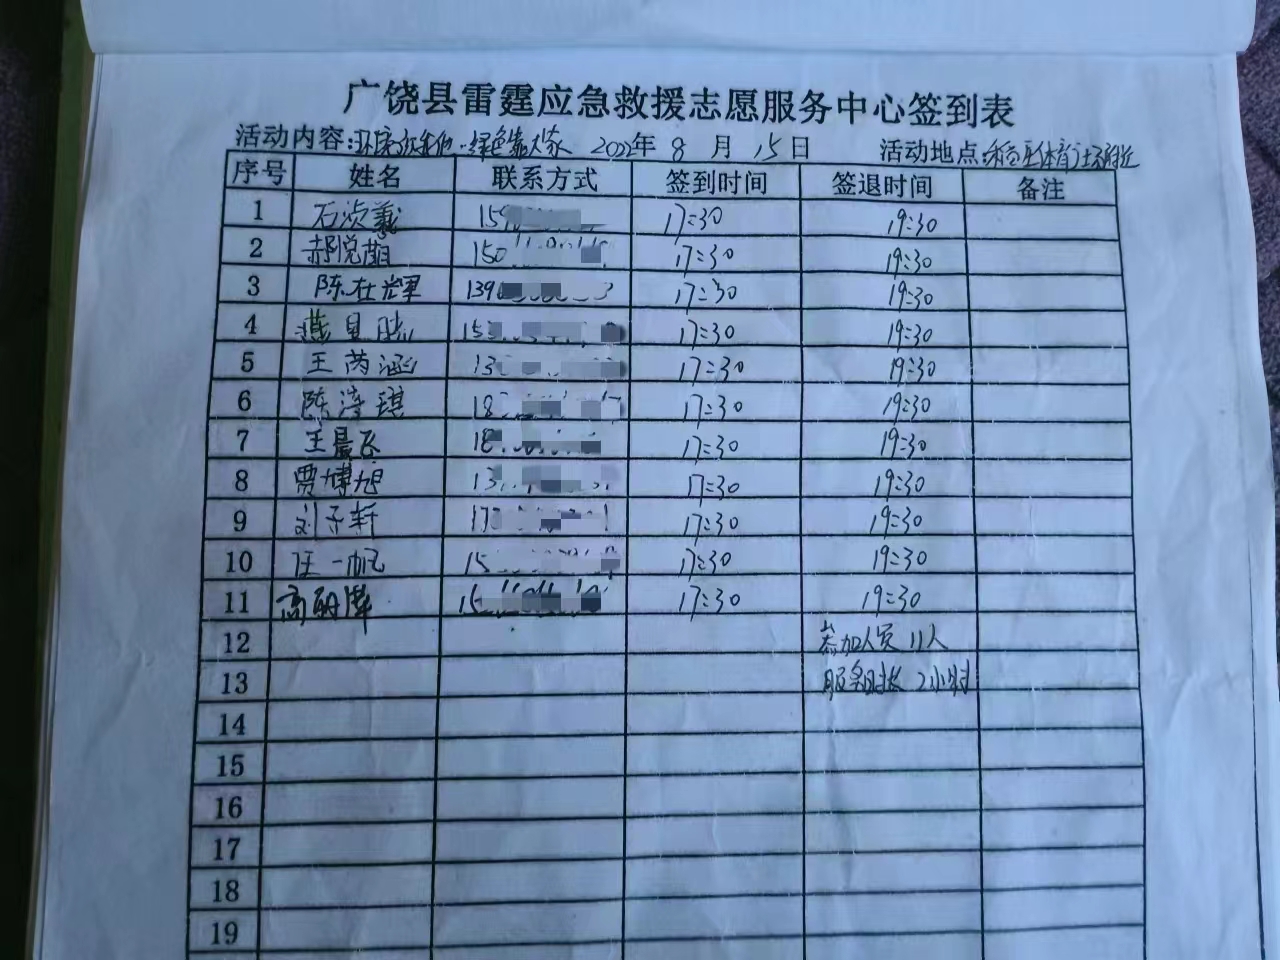 广饶县雷霆应急救援志愿服务中心签到表
活动内容:环保 绿色靠大家 2022年 8 月 15 日 活动地点: 体育 附近
序号 姓名 联系方式 签到时间 签退时间 备注
1 石 羲 159 17:30 19:30
2 郝悦萌 150 17:30 19:30
3 陈在辉 139 17:30 19:30
4 燕 153 17:30 19:30
5 王芮涵 13 17:30 19:30
6 陈 琪 18 17:30 19:30
7 王晨飞 18 17:30 19:30
8 贾博旭 13 17:30 19:30
9 刘子轩 17 17:30 19:30
10 任一帆 15 17:30 19:30
11 高 15 17:30 19:30
12 参加人员 11人
13 服务时长 2小时
14
15
16
17
18
19